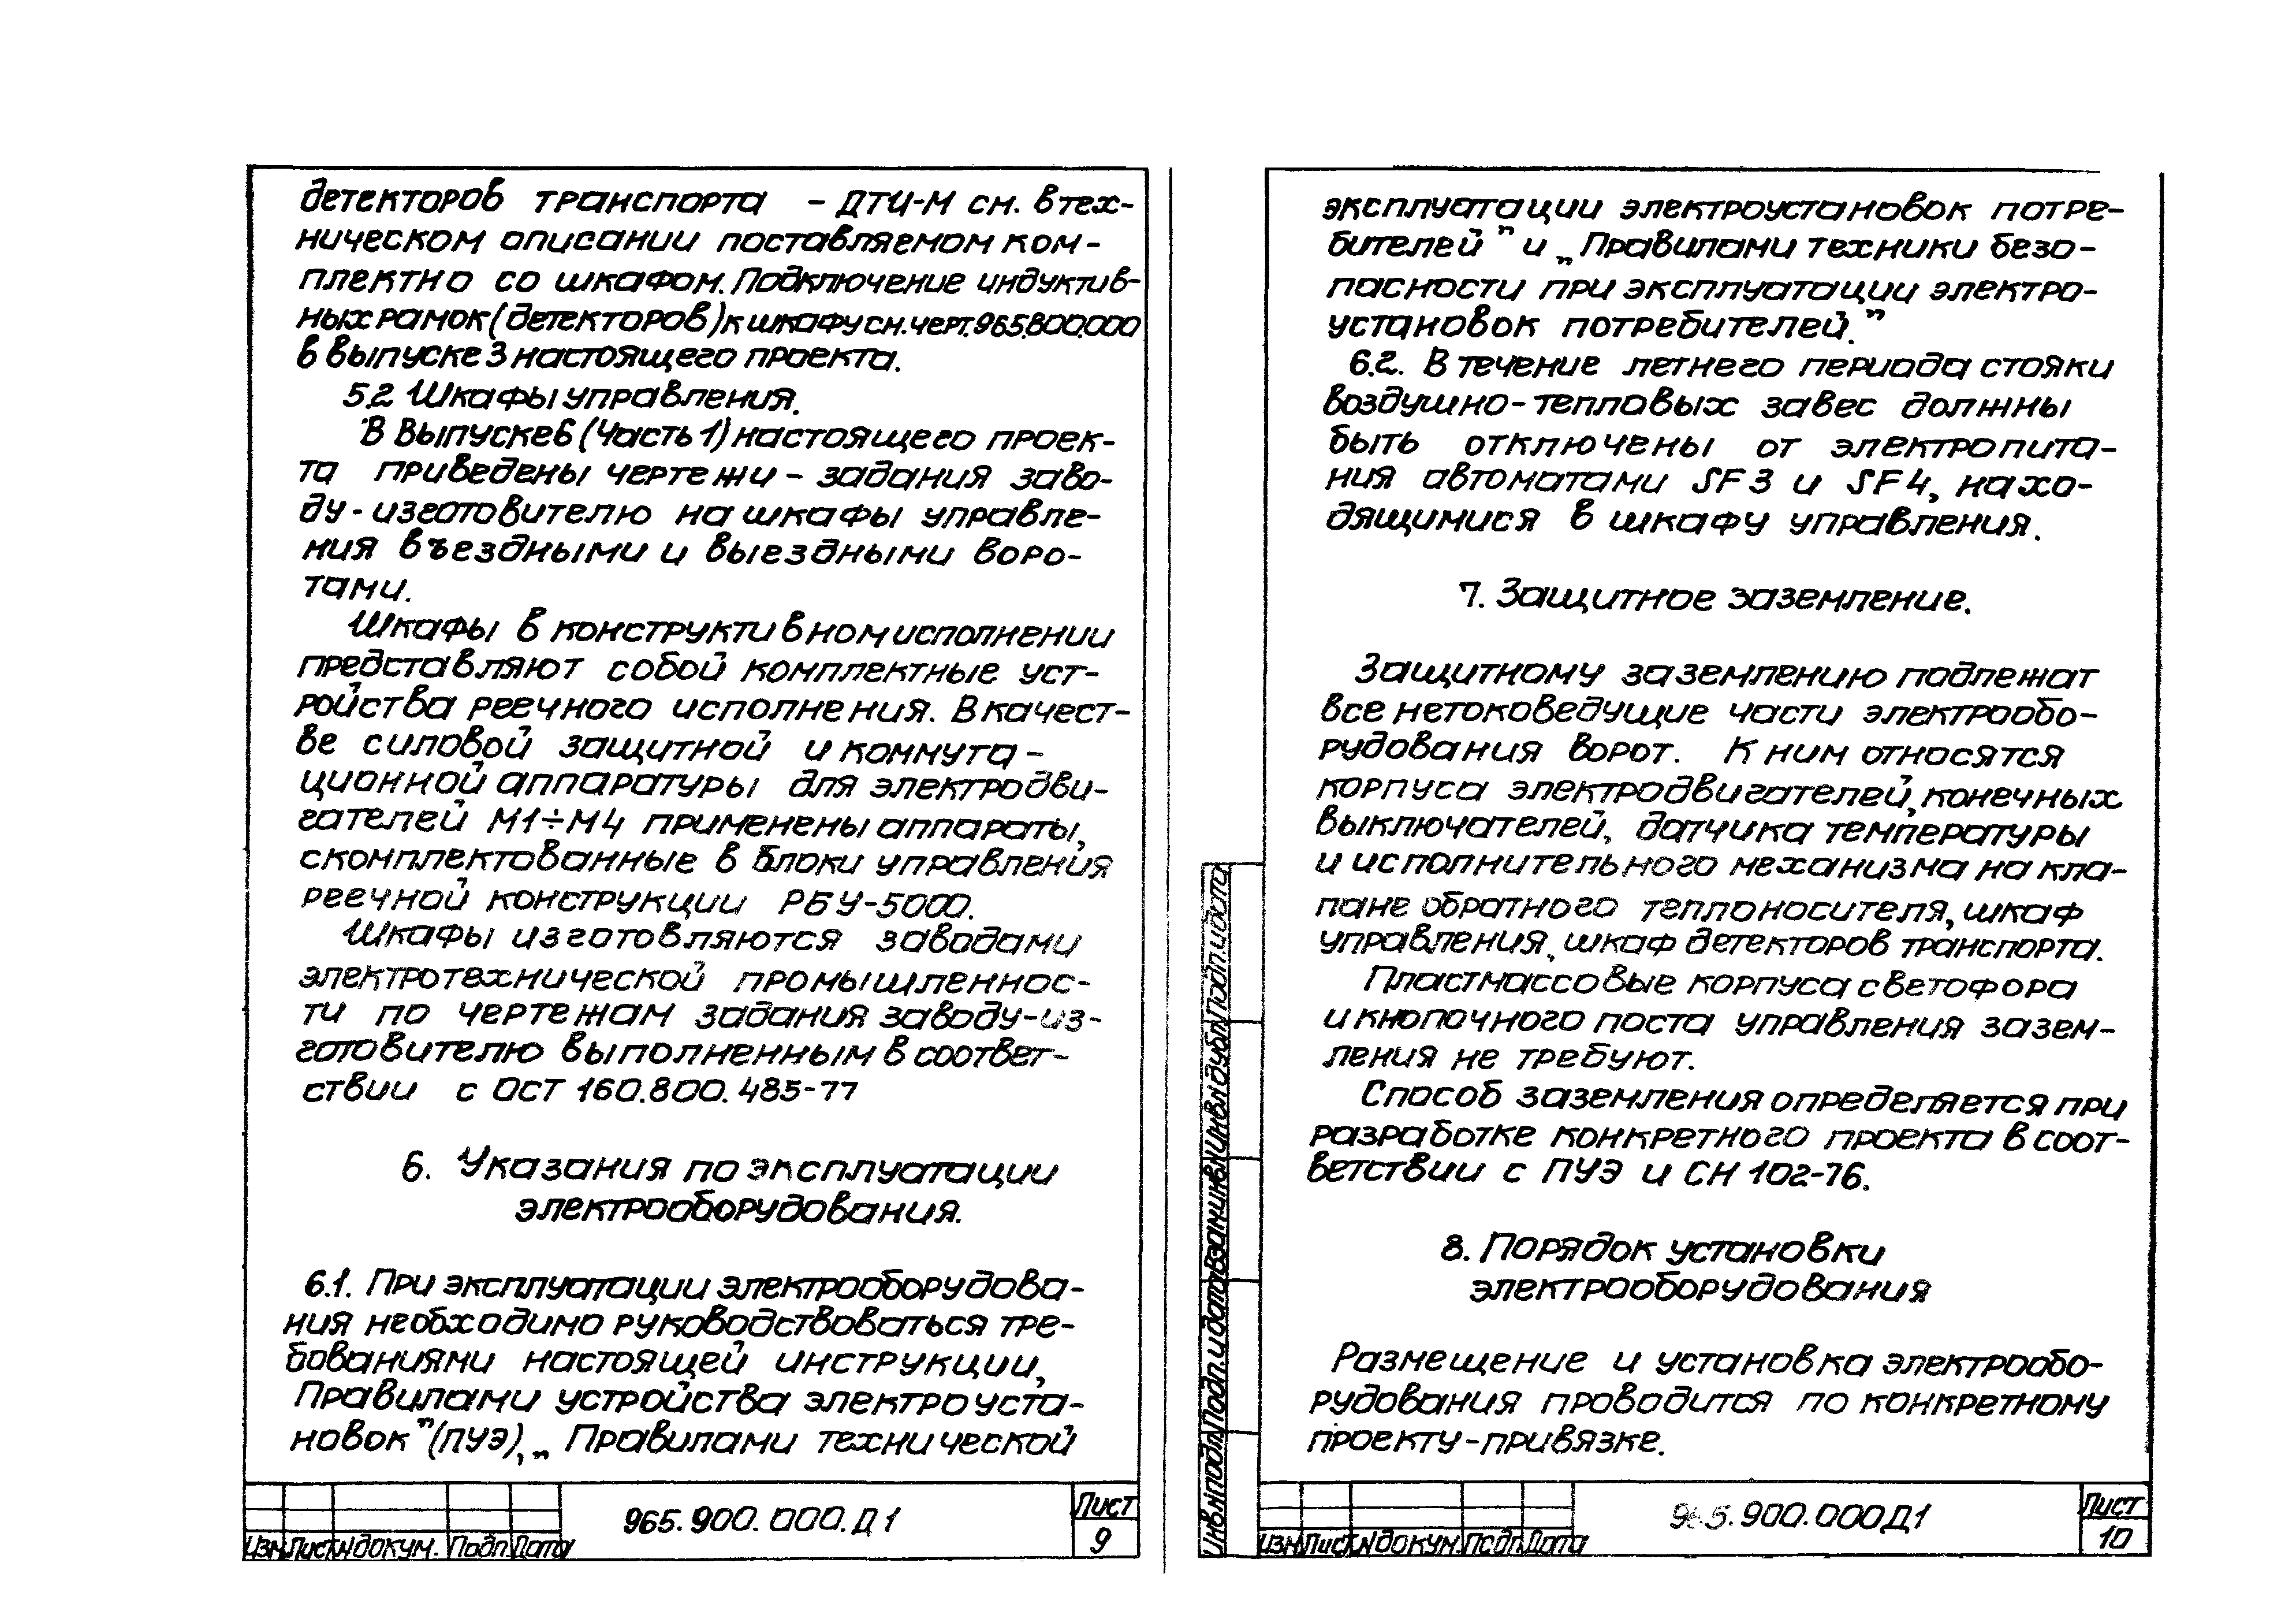 детекторов транспорта - ДТИ-М см. в тех-
ническом описании поставляемом ком-
плектно со шкафом. Подключение индуктив-
ных рамок (детекторов) к шкафу см. черт. 965.800.000
в выпуске 3 настоящего проекта.
5.2 Шкафы управления.
В Выпуске 6 (Часть 1) настоящего проек-
та приведены чертежи - задания заво-
ду - изготовителю на шкафы управле-
ния въездными и выездными воро-
тами.
Шкафы в конструктивном исполнении
представляют собой комплектные уст-
ройства реечного исполнения. В качест-
ве силовой защитной и коммута-
ционной аппаратуры для электродви-
гателей М1÷М4 применены аппараты,
скомплектованные в блоки управления
реечной конструкции РБУ-5000.
Шкафы изготовляются заводами
электротехнической промышленнос-
ти по чертежам задания заводу-из-
готовителю выполненным в соответ-
ствии с ОСТ 160.800.485-77
6. Указания по эксплуатации
электрооборудования.
6.1. При эксплуатации электрооборудова-
ния необходимо руководствоваться тре-
бованиями настоящей инструкции,
Правилами устройства электроуста-
новок" (ПУЭ), „Правилами технической
965.900.000.Д1
Лист
9
Изм Лист N докум. Подп. Дата
эксплуатации электроустановок потре-
бителей" и „Правилами техники безо-
пасности при эксплуатации электро-
установок потребителей."
6.2. В течение летнего периода стояки
воздушно-тепловых завес должны
быть отключены от электропита-
ния автоматами SF3 и SF4, нахо-
дящимися в шкафу управления.
7. Защитное заземление.
Защитному заземлению подлежат
все нетоковедущие части электрообо-
рудования ворот. К ним относятся
корпуса электродвигателей, конечных
выключателей, датчика температуры
и исполнительного механизма на кла-
пане обратного теплоносителя, шкаф
управления, шкаф детекторов транспорта.
Пластмассовые корпуса светофора
и кнопочного поста управления зазем-
ления не требуют.
Способ заземления определяется при
разработке конкретного проекта в соот-
ветствии с ПУЭ и СН 102-76.
8. Порядок установки
электрооборудования
Размещение и установка электрообо-
рудования проводится по конкретному
проекту-привязке.
Инв.N подл. Подп. и дата Взам.инв.N Инв.N дубл. Подп. и дата
965.900.000Д1
Лист
10
Изм Лист N докум. Подп. Дата